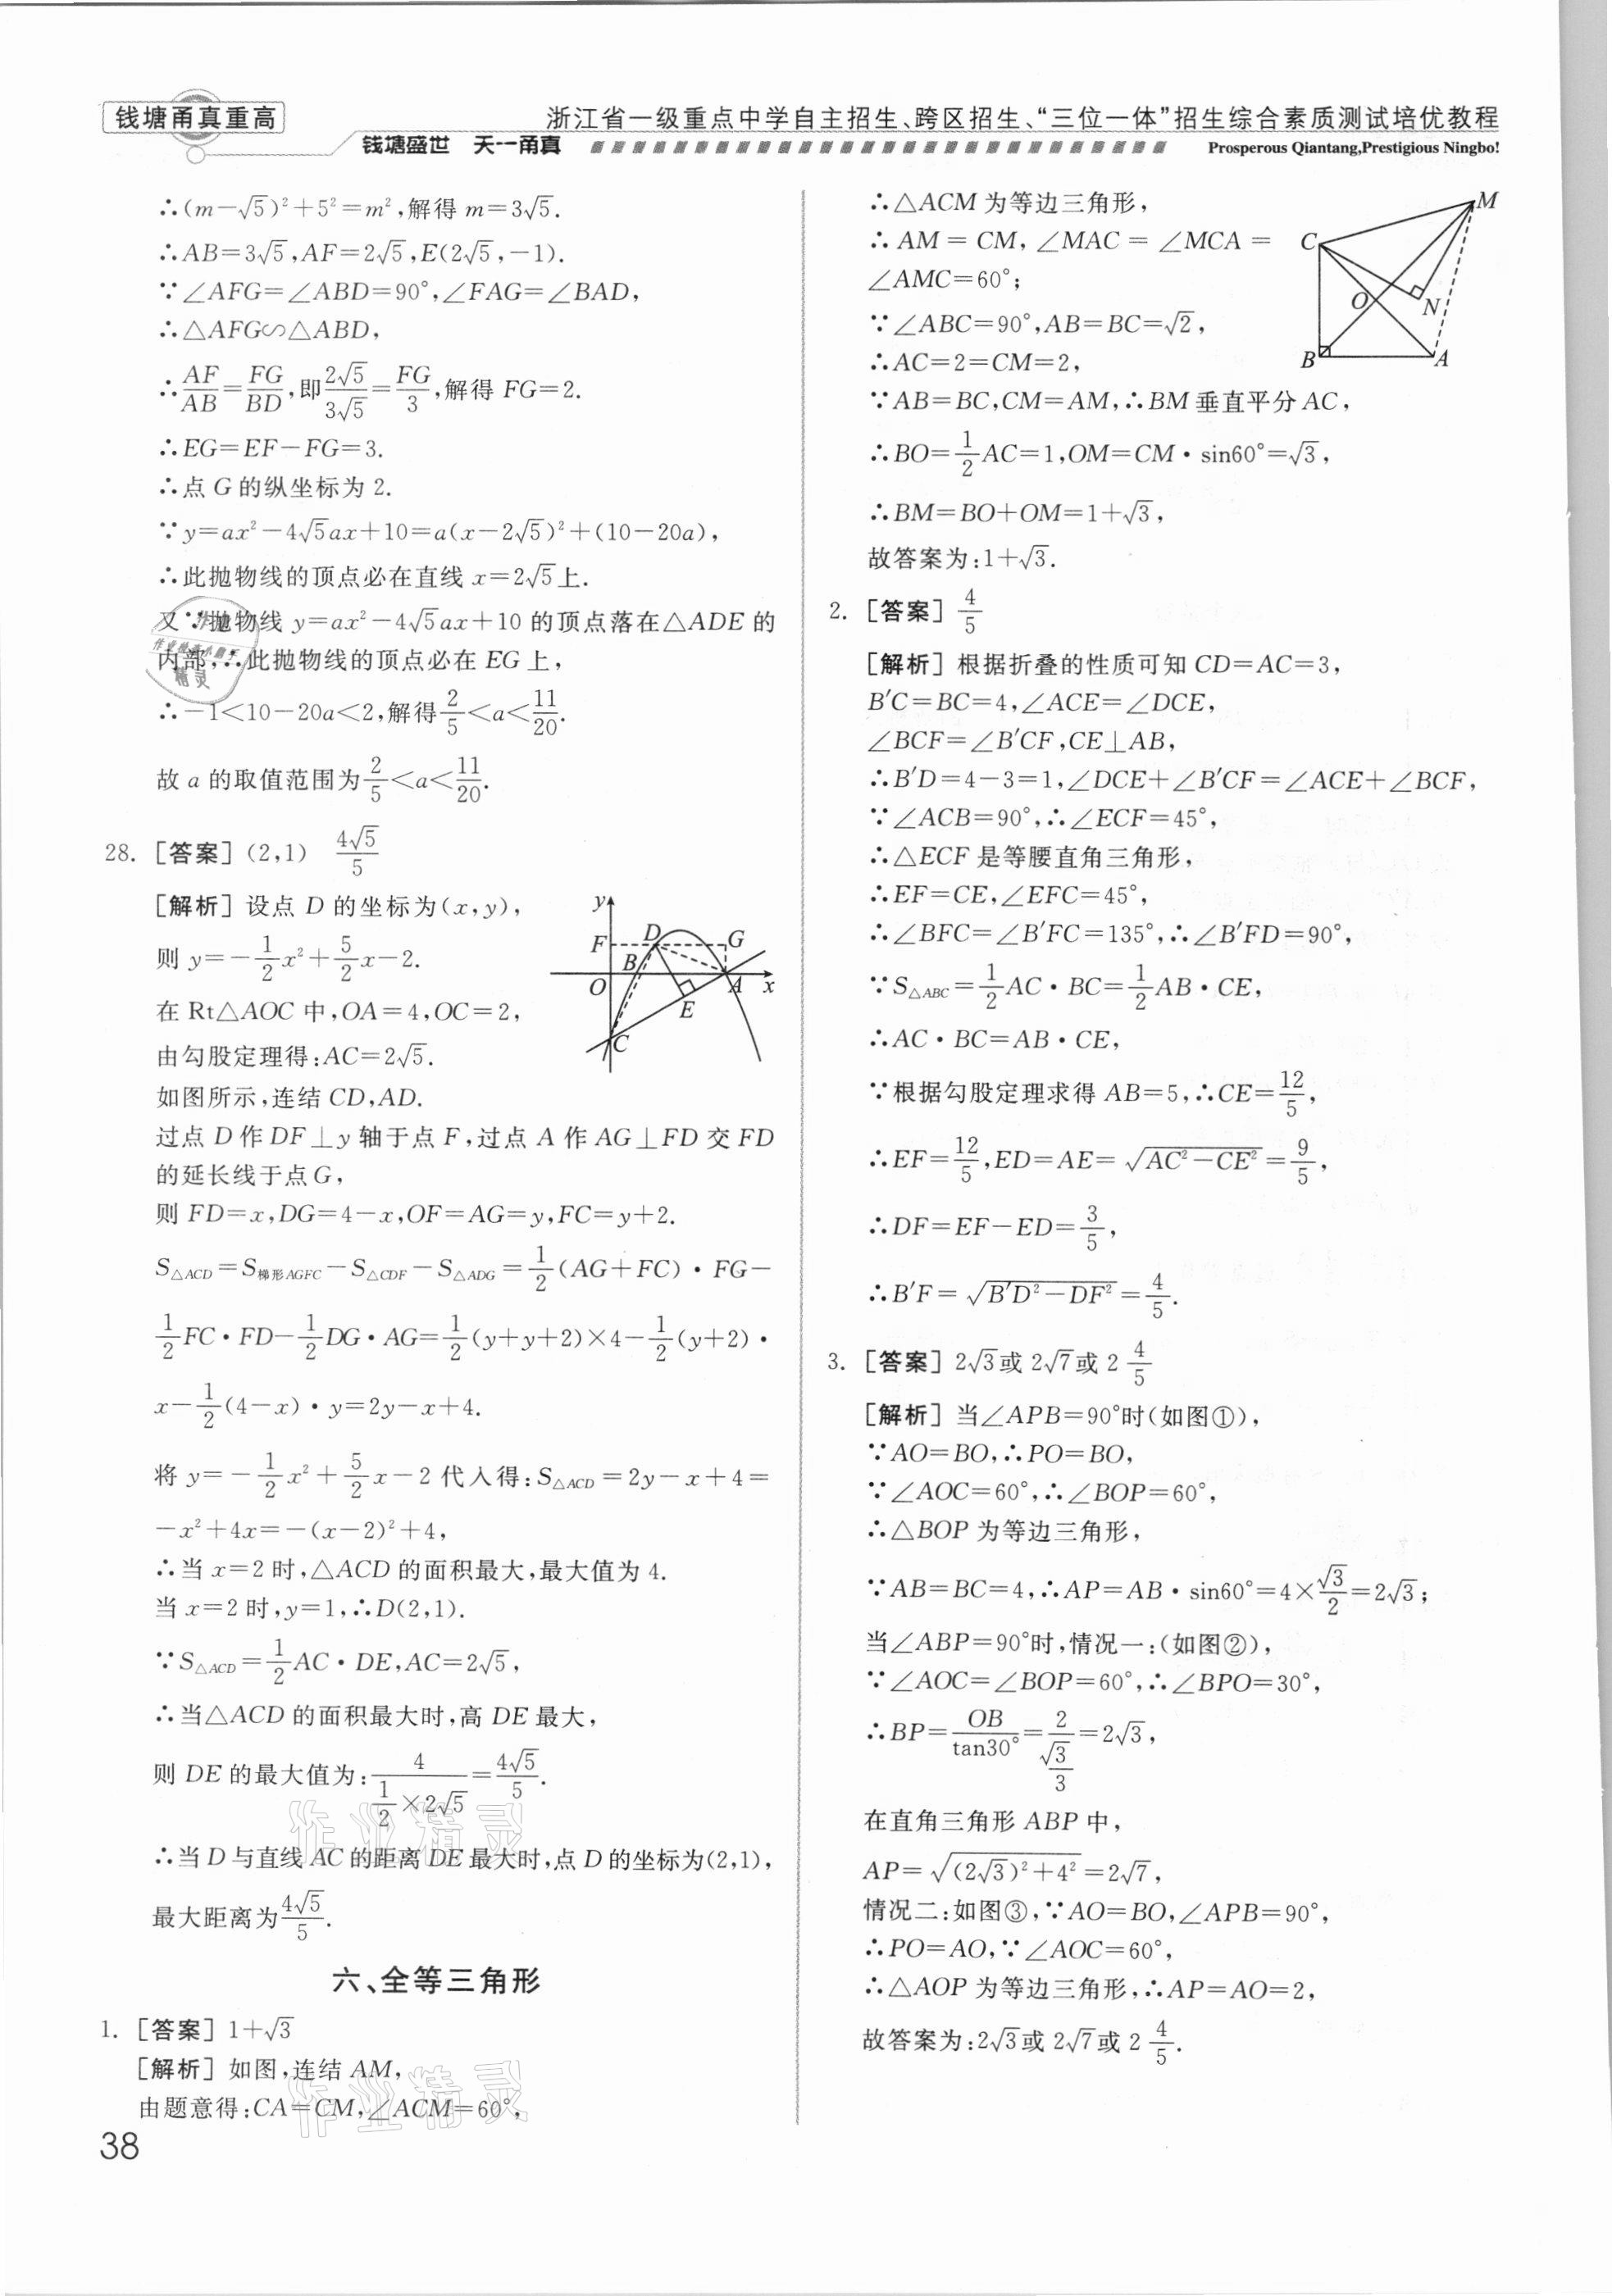 钱塘甬真重高
浙江省一级重点中学自主招生、跨区招生、“三位一体”招生综合素质测试培优教程
钱塘盛世 天一甬真
Prosperous Qiantang,Prestigious Ningbo!
∴(m-√5)²+5²=m²,解得 m=3√5.
∴AB=3√5,AF=2√5,E(2√5,-1).
∵∠AFG=∠ABD=90°,∠FAG=∠BAD,
∴△AFG∽△ABD,
∴AF/AB=FG/BD,即2√5/3√5=FG/3,解得 FG=2.
∴EG=EF-FG=3.
∴点 G 的纵坐标为 2.
∵y=ax²-4√5ax+10=a(x-2√5)²+(10-20a),
∴此抛物线的顶点必在直线 x=2√5上.
又∵抛物线 y=ax²-4√5ax+10 的顶点落在△ADE 的
内部,∴此抛物线的顶点必在 EG 上,
∴-1<10-20a<2,解得2/5<a<11/20.
故 a 的取值范围为2/5<a<11/20.
28. [答案] (2,1) 4√5/5
[解析] 设点 D 的坐标为(x,y),
则 y=-1/2x²+5/2x-2.
在 Rt△AOC 中,OA=4,OC=2,
由勾股定理得:AC=2√5.
如图所示,连结 CD,AD.
y
F
D
G
B
O
A
x
E
C
过点 D 作 DF⊥y 轴于点 F,过点 A 作 AG⊥FD 交 FD
的延长线于点 G,
则 FD=x,DG=4-x,OF=AG=y,FC=y+2.
S△ACD=S梯形AGFC-S△CDF-S△ADG=1/2(AG+FC)·FG-
1/2FC·FD-1/2DG·AG=1/2(y+y+2)×4-1/2(y+2)·
x-1/2(4-x)·y=2y-x+4.
将 y=-1/2x²+5/2x-2 代入得:S△ACD=2y-x+4=
-x²+4x=-(x-2)²+4,
∴当 x=2 时,△ACD 的面积最大,最大值为 4.
当 x=2 时,y=1,∴D(2,1).
∵S△ACD=1/2AC·DE,AC=2√5,
∴当△ACD 的面积最大时,高 DE 最大,
则 DE 的最大值为:4/(1/2×2√5)=4√5/5.
∴当 D 与直线 AC 的距离 DE 最大时,点 D 的坐标为(2,1),
最大距离为4√5/5.
六、全等三角形
1. [答案] 1+√3
[解析] 如图,连结 AM,
由题意得:CA=CM,∠ACM=60°,
38
∴△ACM 为等边三角形,
∴AM=CM,∠MAC=∠MCA=
∠AMC=60°;
∵∠ABC=90°,AB=BC=√2,
∴AC=2=CM=2,
M
C
O
N
B
A
∵AB=BC,CM=AM,∴BM 垂直平分 AC,
∴BO=1/2AC=1,OM=CM·sin60°=√3,
∴BM=BO+OM=1+√3,
故答案为:1+√3.
2. [答案] 4/5
[解析] 根据折叠的性质可知 CD=AC=3,
B′C=BC=4,∠ACE=∠DCE,
∠BCF=∠B′CF,CE⊥AB,
∴B′D=4-3=1,∠DCE+∠B′CF=∠ACE+∠BCF,
∵∠ACB=90°,∴∠ECF=45°,
∴△ECF 是等腰直角三角形,
∴EF=CE,∠EFC=45°,
∴∠BFC=∠B′FC=135°,∴∠B′FD=90°,
∵S△ABC=1/2AC·BC=1/2AB·CE,
∴AC·BC=AB·CE,
∵根据勾股定理求得 AB=5,∴CE=12/5,
∴EF=12/5,ED=AE=√(AC²-CE²)=9/5,
∴DF=EF-ED=3/5,
∴B′F=√(B′D²-DF²)=4/5.
3. [答案] 2√3或 2√7或 2 4/5
[解析] 当∠APB=90°时(如图①),
∵AO=BO,∴PO=BO,
∵∠AOC=60°,∴∠BOP=60°,
∴△BOP 为等边三角形,
∵AB=BC=4,∴AP=AB·sin60°=4×√3/2=2√3;
当∠ABP=90°时,情况一:(如图②),
∵∠AOC=∠BOP=60°,∴∠BPO=30°,
∴BP=OB/tan30°=2/(√3/3)=2√3,
在直角三角形 ABP 中,
AP=√((2√3)²+4²)=2√7,
情况二:如图③,∵AO=BO,∠APB=90°,
∴PO=AO,∵∠AOC=60°,
∴△AOP 为等边三角形,∴AP=AO=2,
故答案为:2√3或 2√7或 2 4/5.
作业精灵
作业精灵